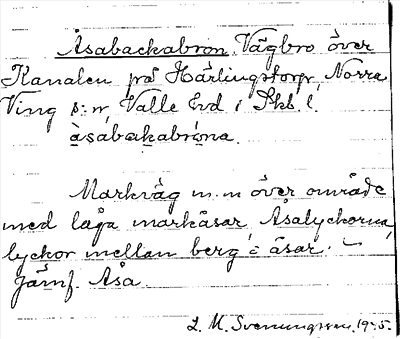 Åsabackabron. Vägbro över
Kanalen på Härlingstorp, Norra
Ving s:n, Valle hd i Skb. l.
åsabakabróna.
Markväg m.m över område
med låga markåsar. Åsalyckorna,
lyckor mellan berg å åsar.
Jämf. Åsa.
L. M. Svenungsson.